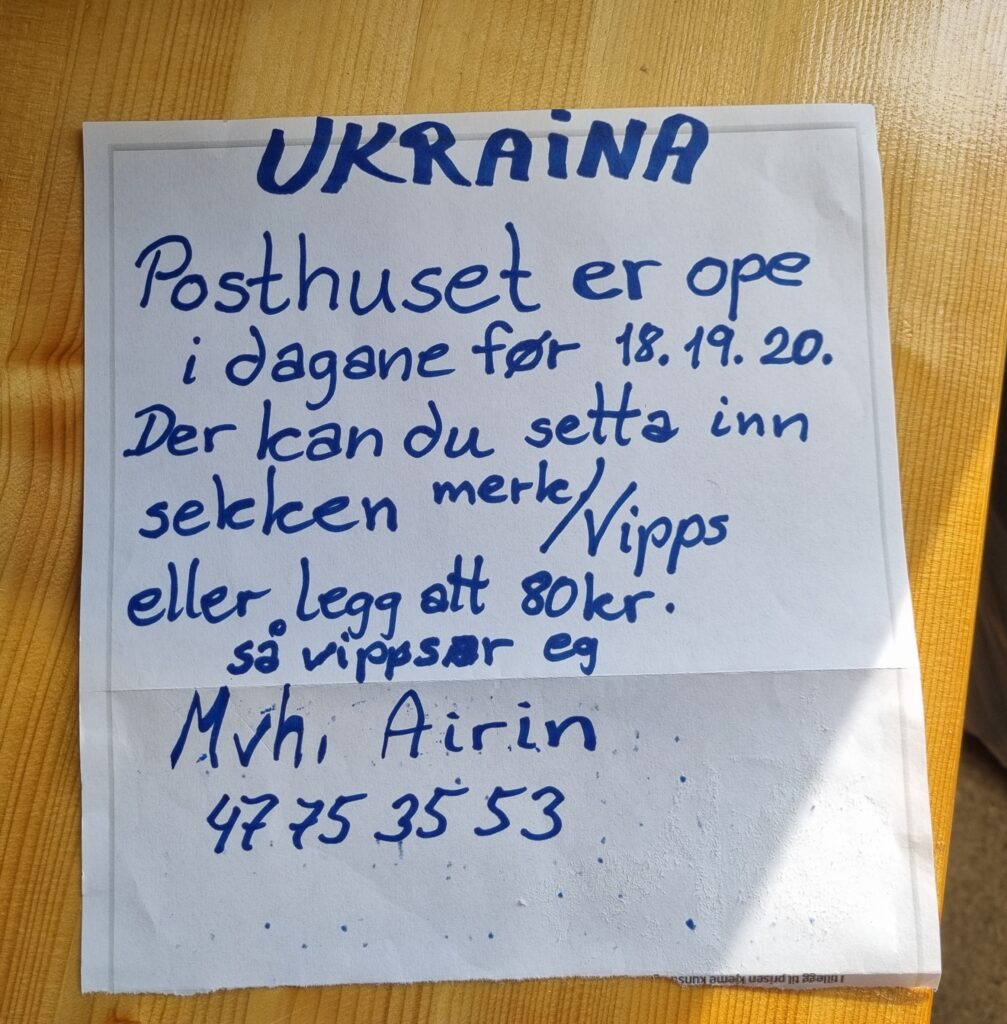 UKRAINA
Posthuset er ope
i dagane før 18.19.20.
Der kan du setta inn
sekken merk/Vipps
eller legg att 80kr.
så vippsar eg
Mvh, Airin
47 75 35 53
I tillegg til prisen kjeme kuns